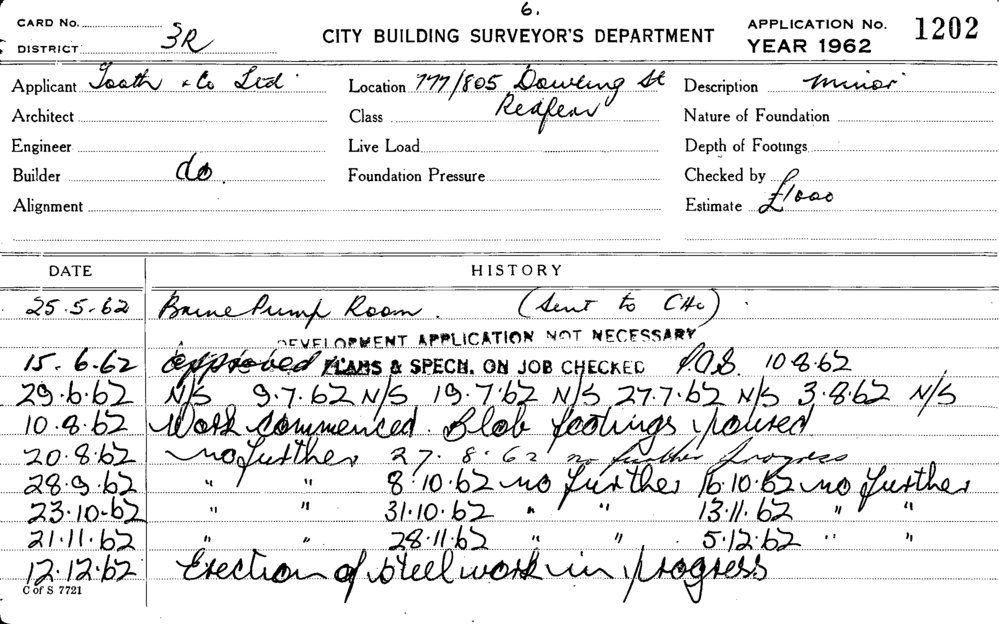 6.
CARD No. CITY BUILDING SURVEYOR'S DEPARTMENT APPLICATION No. 1202
DISTRICT 3R YEAR 1962
Applicant Tooth & Co Ltd Location 777/805 Dowling St Description Minor
Architect Class Redfern Nature of Foundation
Engineer Live Load Depth of Footings
Builder do. Foundation Pressure Checked by
Alignment Estimate £1000
DATE HISTORY
25.5.62 Brine Pump Room. (Sent to CHO)
DEVELOPMENT APPLICATION NOT NECESSARY
15.6.62 approved PLANS & SPECN. ON JOB CHECKED 10.8.62
29.6.62 N/S 9.7.62 N/S 19.7.62 N/S 27.7.62 N/S 3.8.62 N/S
10.8.62 Work commenced. Blob footings poured
20.8.62 no further 27.8.62 no further progress
28.9.62 " " 8.10.62 no further 16.10.62 no further
23.10.62 " " 31.10.62 " " 13.11.62 " "
21.11.62 " " 28.11.62 " " 5.12.62 " "
12.12.62 Erection of steel work in progress
C of S 7721